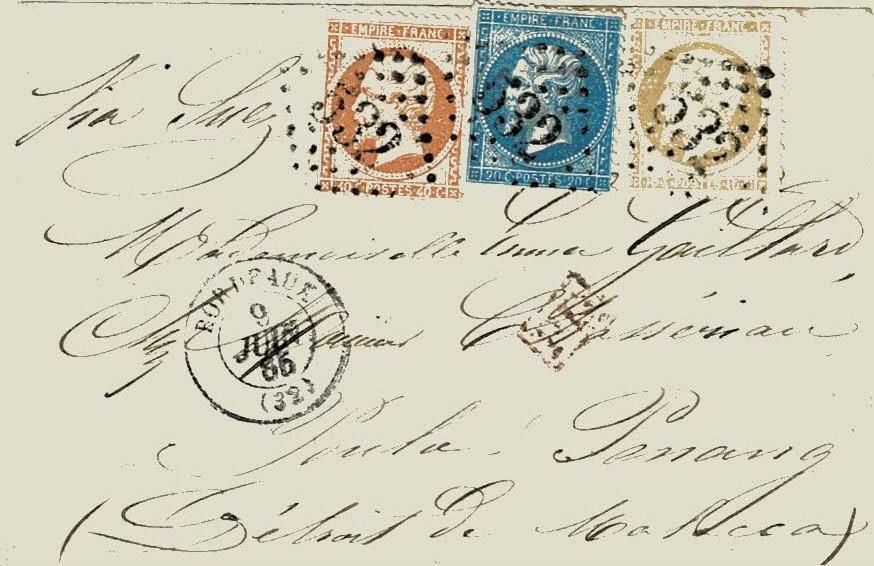 EMPIRE FRANC EMPIRE FRANC EMPIRE FRANC
532 532 532
40 C POSTES 40 C 20 C POSTES 20 C
Via Suez
Mademoiselle Emma Gaillard
BORDEAUX
9
JUIN
65
(32)
Poulo Penang
(Détroit de Malacca)